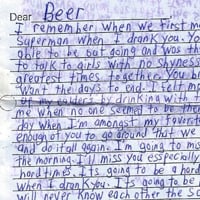 Dear Beer
I remember when we first m
Superman when I drank you. Yo
able to live but going and was th
to talk to girls with no shyness
greatest times together. You b
want the days to end. I felt m
of my elders by drinking with
me when no one seemed to be the
day when I'm amongst my favorit
enough of you to go around that we
and do it all again. I'm going to mis
the morning. I'll miss you especially
hard times. It's going to be a hard
when I drank you. It's going to be
will never know each other the s